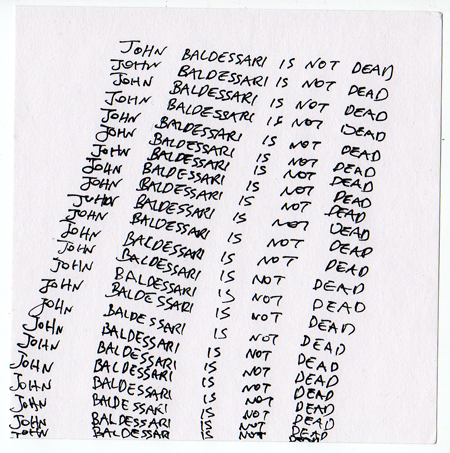 JOHN BALDESSARI IS NOT DEAD
JOHN BALDESSARI IS NOT DEAD
JOHN BALDESSARI IS NOT DEAD
JOHN BALDESSARI IS NOT DEAD
JOHN BALDESSARI IS NOT DEAD
JOHN BALDESSARI IS NOT DEAD
JOHN BALDESSARI IS NOT DEAD
JOHN BALDESSARI IS NOT DEAD
JOHN BALDESSARI IS NOT DEAD
JOHN BALDESSARI IS NOT DEAD
JOHN BALDESSARI IS NOT DEAD
JOHN BALDESSARI IS NOT DEAD
JOHN BALDESSARI IS NOT DEAD
JOHN BALDESSARI IS NOT DEAD
JOHN BALDESSARI IS NOT DEAD
JOHN BALDESSARI IS NOT DEAD
JOHN BALDESSARI IS NOT DEAD
JOHN BALDESSARI IS NOT DEAD
JOHN BALDESSARI IS NOT DEAD
JOHN BALDESSARI IS NOT DEAD
JOHN BALDESSARI IS NOT DEAD
JOHN BALDESSARI IS NOT DEAD
JOHN BALDESSARI IS NOT DEAD